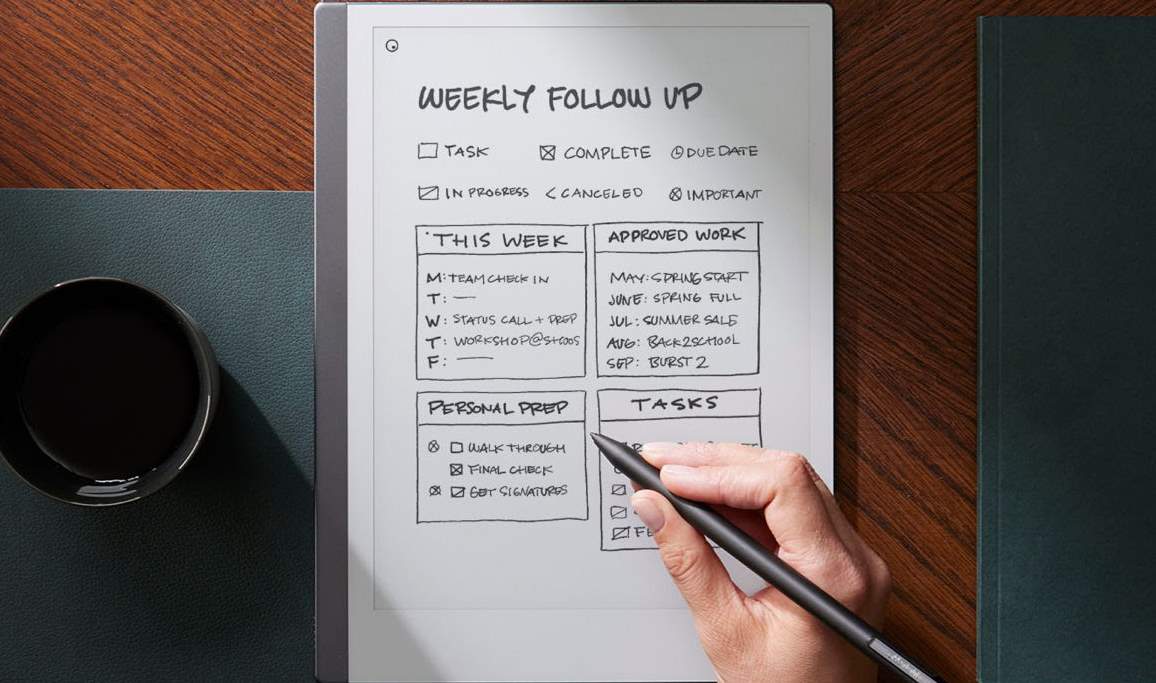 WEEKLY FOLLOW UP
TASK COMPLETE DUE DATE
IN PROGRESS CANCELED IMPORTANT
THIS WEEK
M: TEAM CHECK IN
T: —
W: STATUS CALL + PREP
T: WORKSHOP@
F: —
APPROVED WORK
MAY: SPRING START
JUNE: SPRING FULL
JUL: SUMMER SALE
AUG: BACK2SCHOOL
SEP: BURST 2
PERSONAL PREP
WALK THROUGH
FINAL CHECK
GET SIGNATURES
TASKS